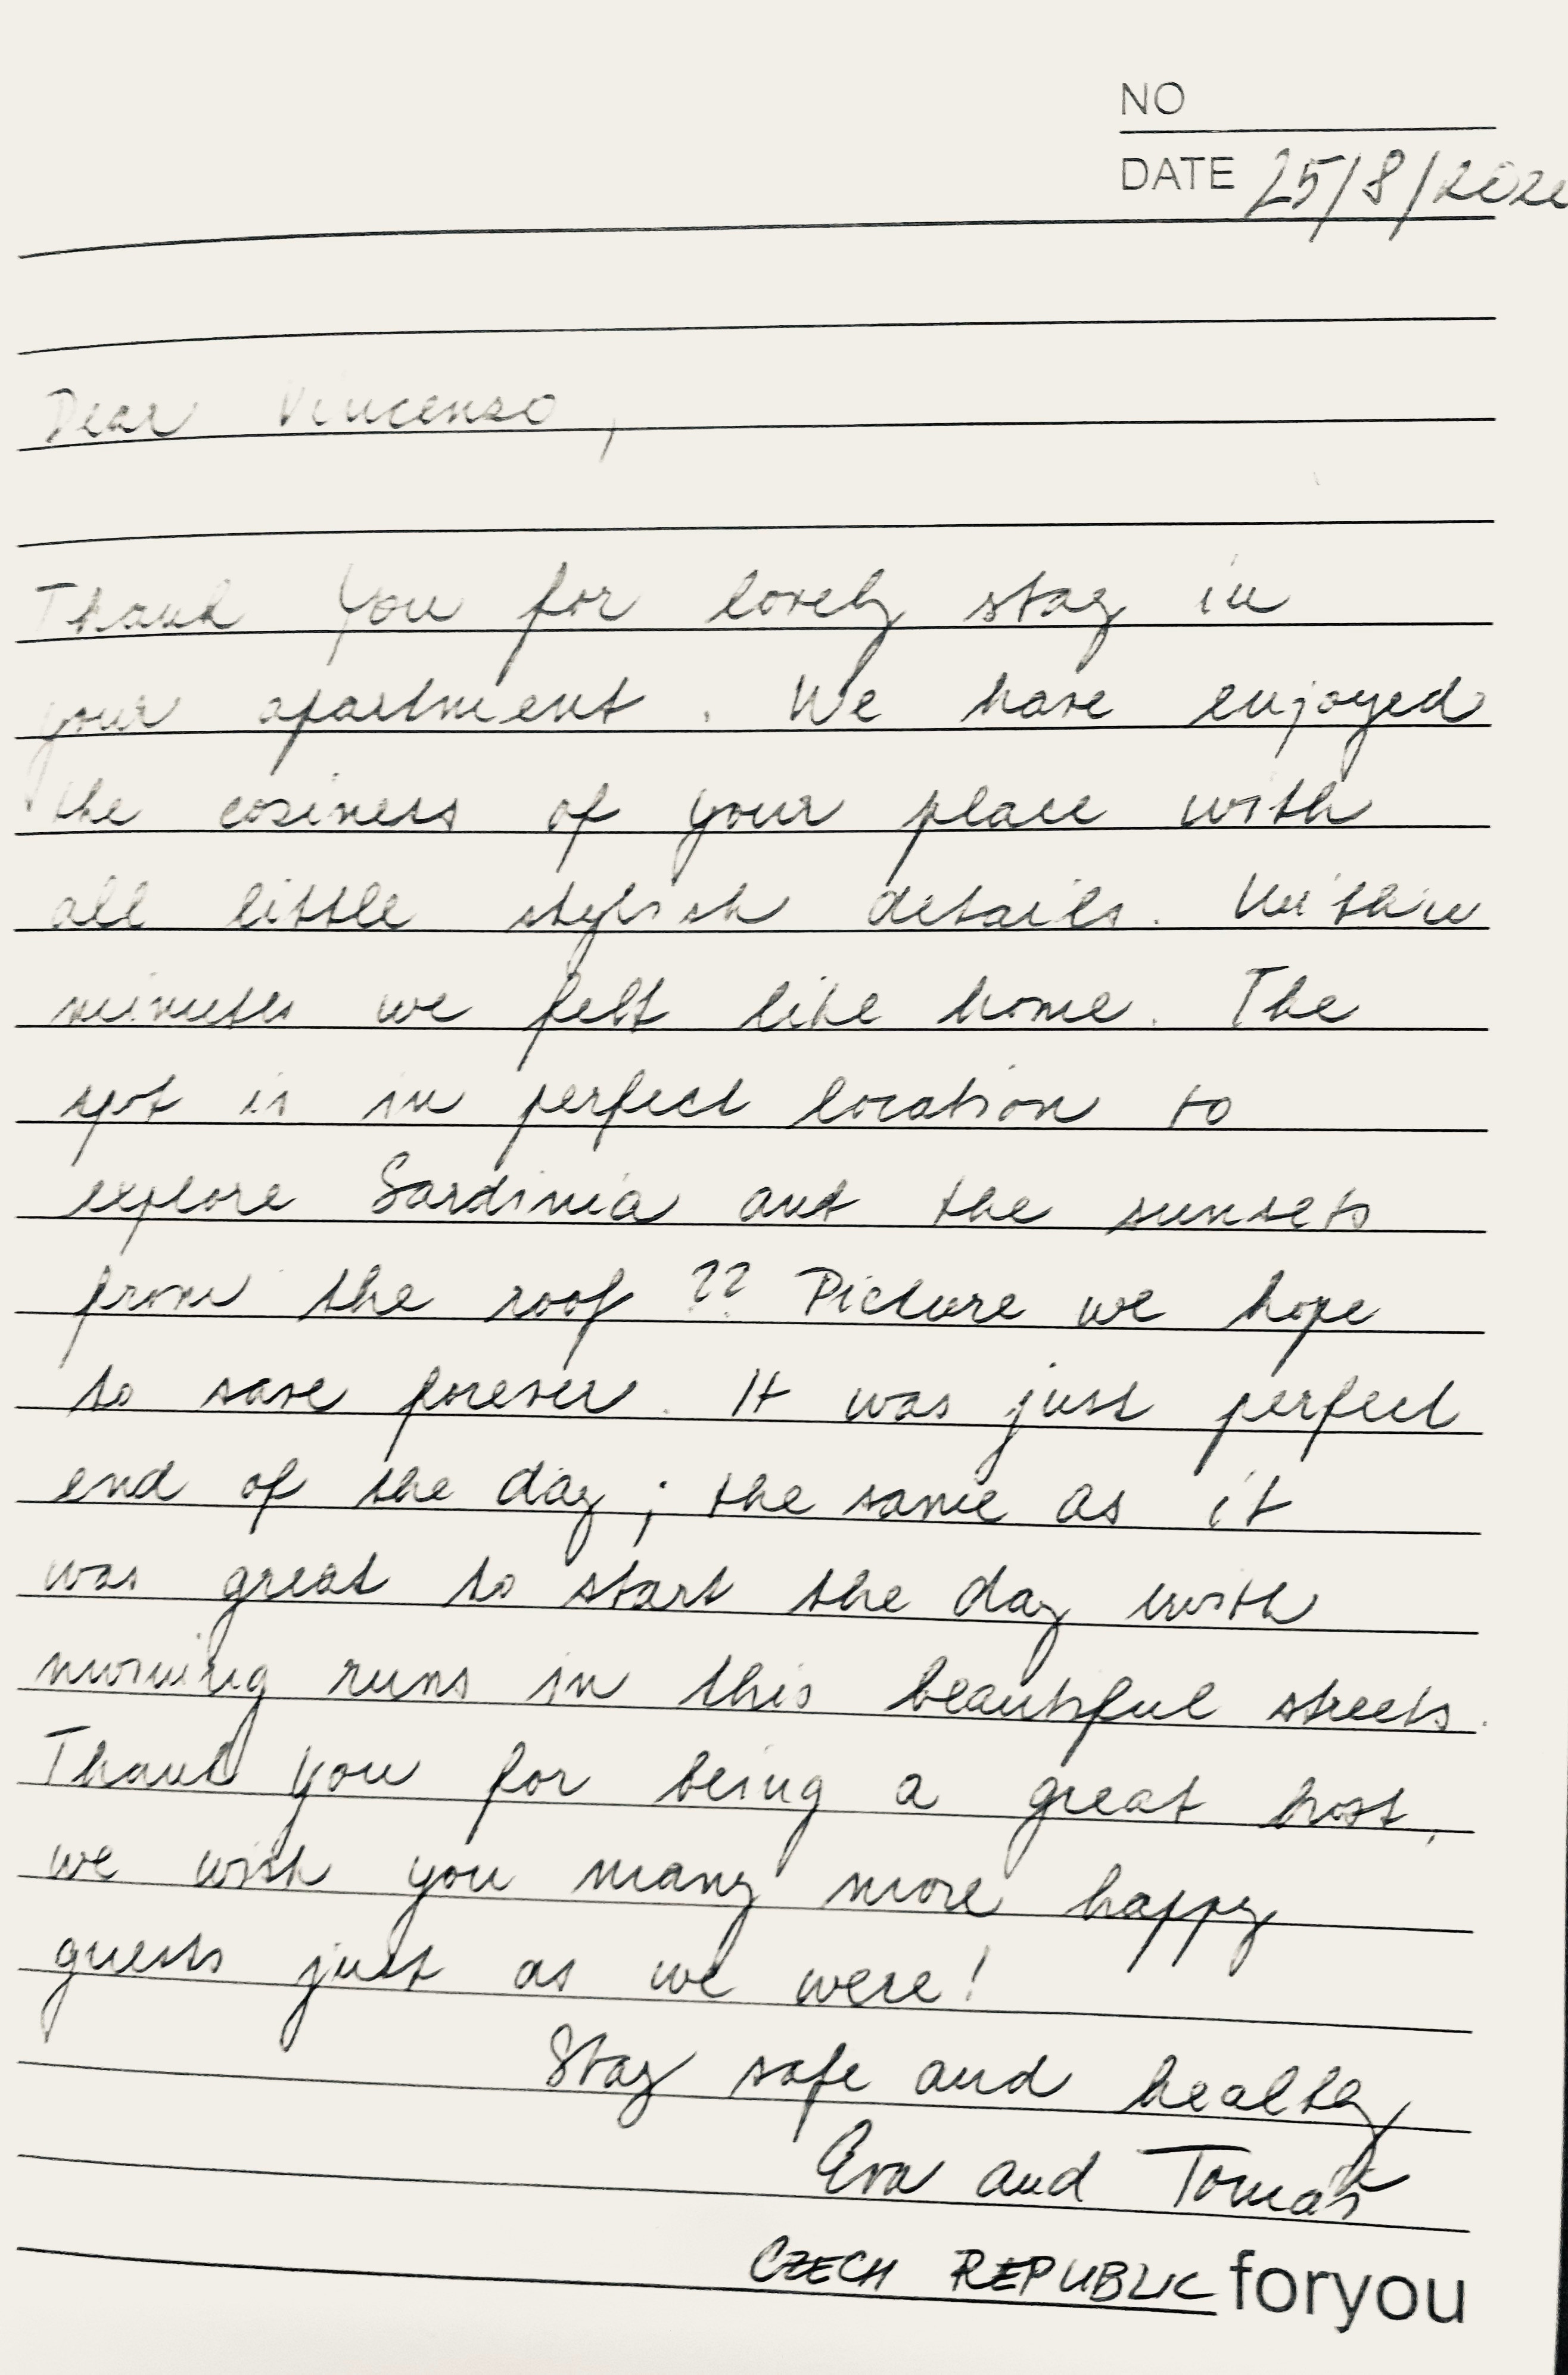 NO
DATE 25/8/2020
Dear Vincenzo,
Thank You for lovely stay in
your apartment. We have enjoyed
the cosiness of your place with
all little stylish details. Within
minutes we felt like home. The
spot is in perfect location to
explore Sardinia and the sunsets
from the roof ?? Picture we hope
to save forever. It was just perfect
end of the day; the same as it
was great to start the day with
morning runs in this beautiful streets.
Thank you for being a great host,
we wish you many more happy
guests just as we were!
Stay safe and healthy
Eva and Tomáš
CZECH REPUBLIC foryou